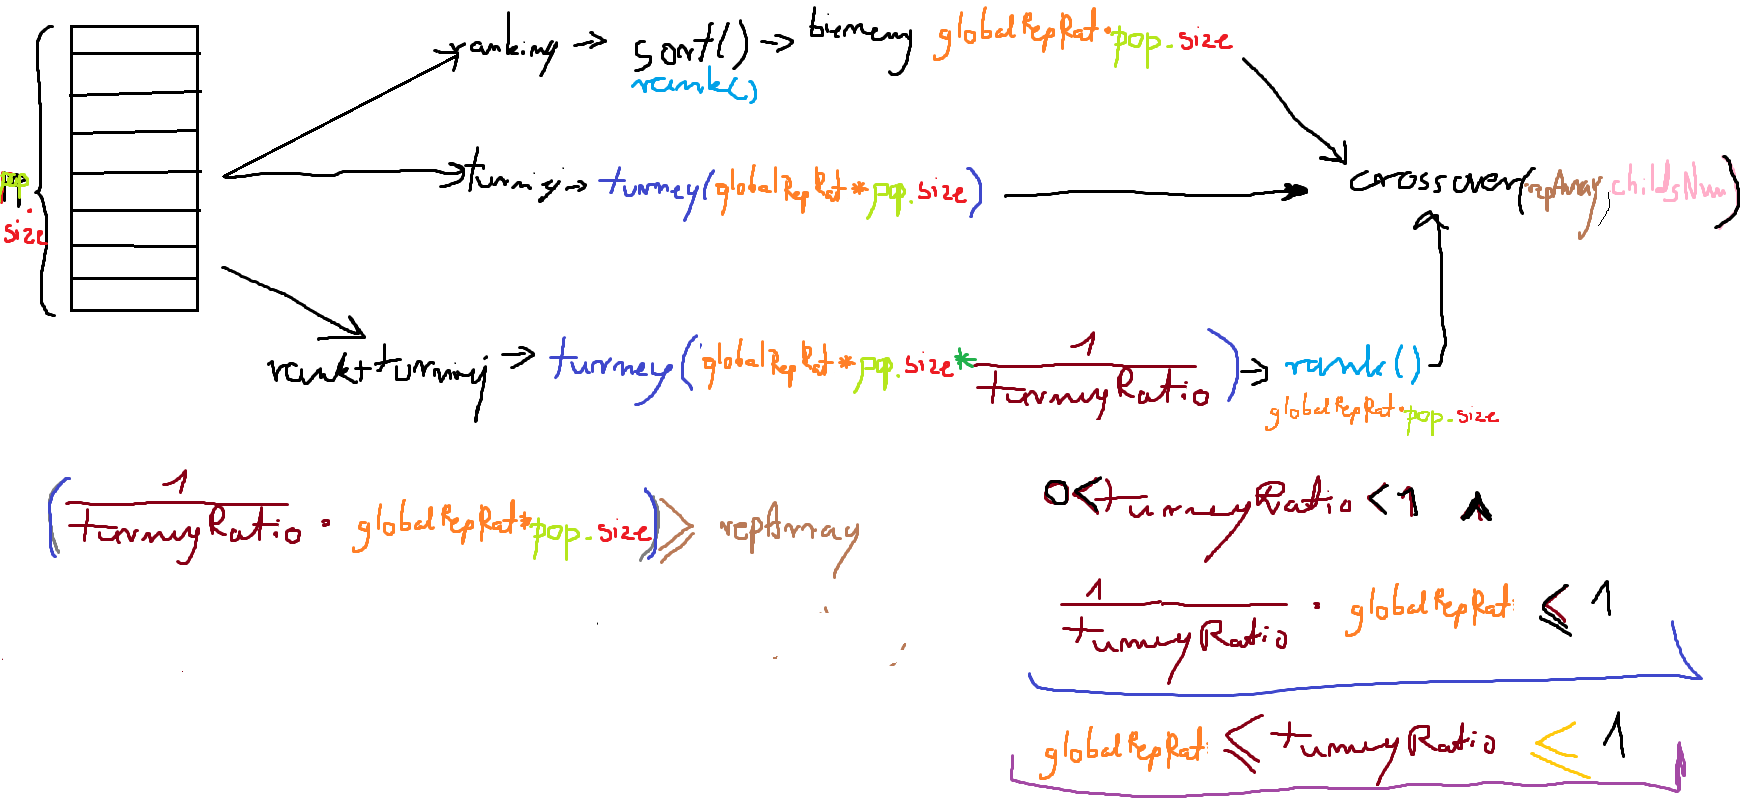 ranking → sort() → biemeny globalRepRat·pop.size
rank()
pop.size
turniej → turney(globalRepRat*pop.size)
crossover(repArray, childsNum)
rank+turniej → turney(globalRepRat*pop.size * 1/turneyRatio) → rank()
globalRepRat·pop.size
(1/turneyRatio · globalRepRat*pop.size) ⩾ repArray
0 < turneyRatio < 1 ∧
1/turneyRatio · globalRepRat ⩽ 1
globalRepRat ⩽ turneyRatio ⩽ 1